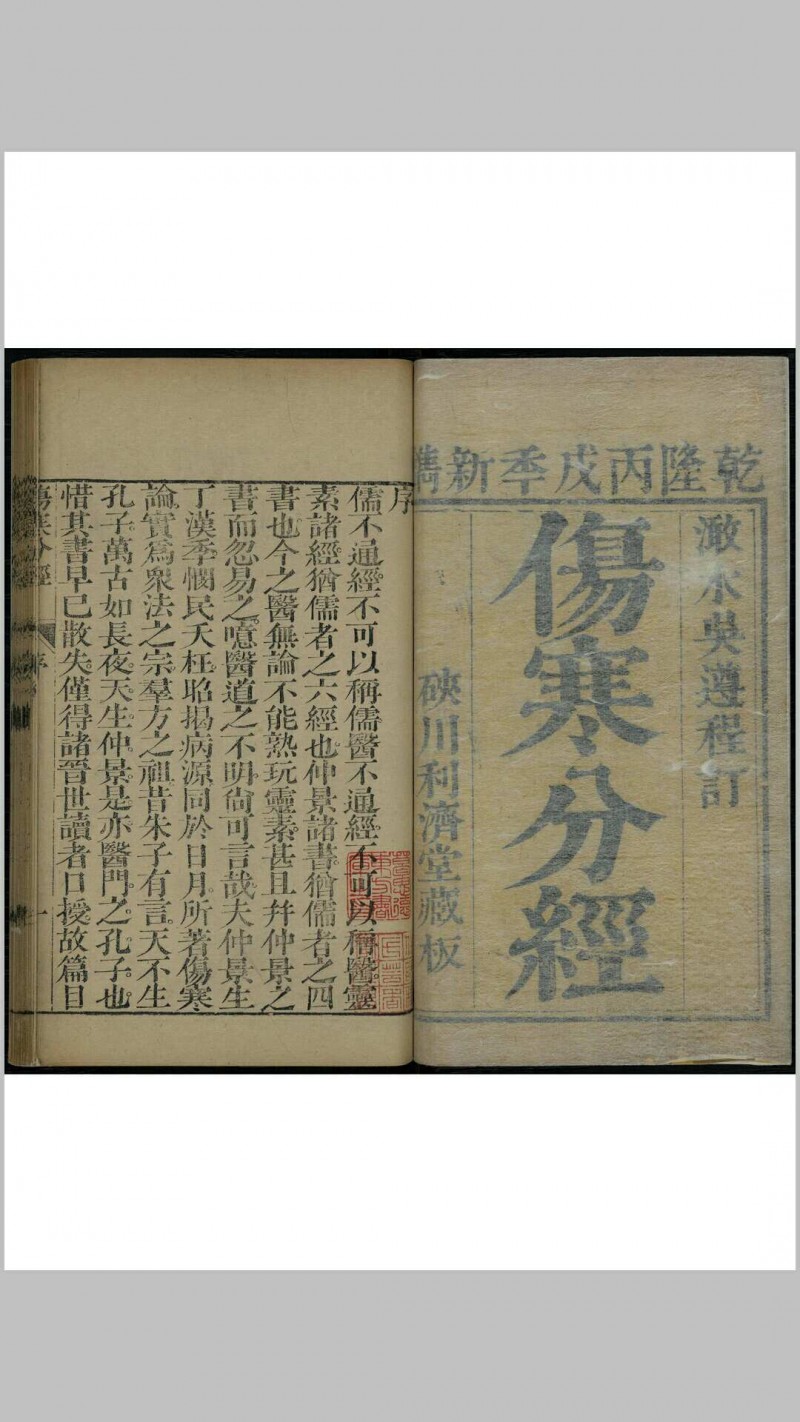 乾隆丙戌季新鐫
澉水吳遵程訂
傷寒分經
硤川利濟堂藏板
序
儒不通經不可以稱儒醫不通經不可以稱醫靈
素諸經猶儒者之六經也仲景諸書猶儒者之四
書也今之醫無論不能熟玩靈素甚且幷仲景之
書而忽易之噫醫道之不明尙可言哉夫仲景生
丁漢季憫民夭枉昭揭病源同於日月所著傷寒
論實爲衆法之宗羣方之祖昔朱子有言天不生
孔子萬古如長夜天生仲景是亦醫門之孔子也
惜其書早已散失僅得諸晉世讀者口授故篇目
傷寒分經
序
一